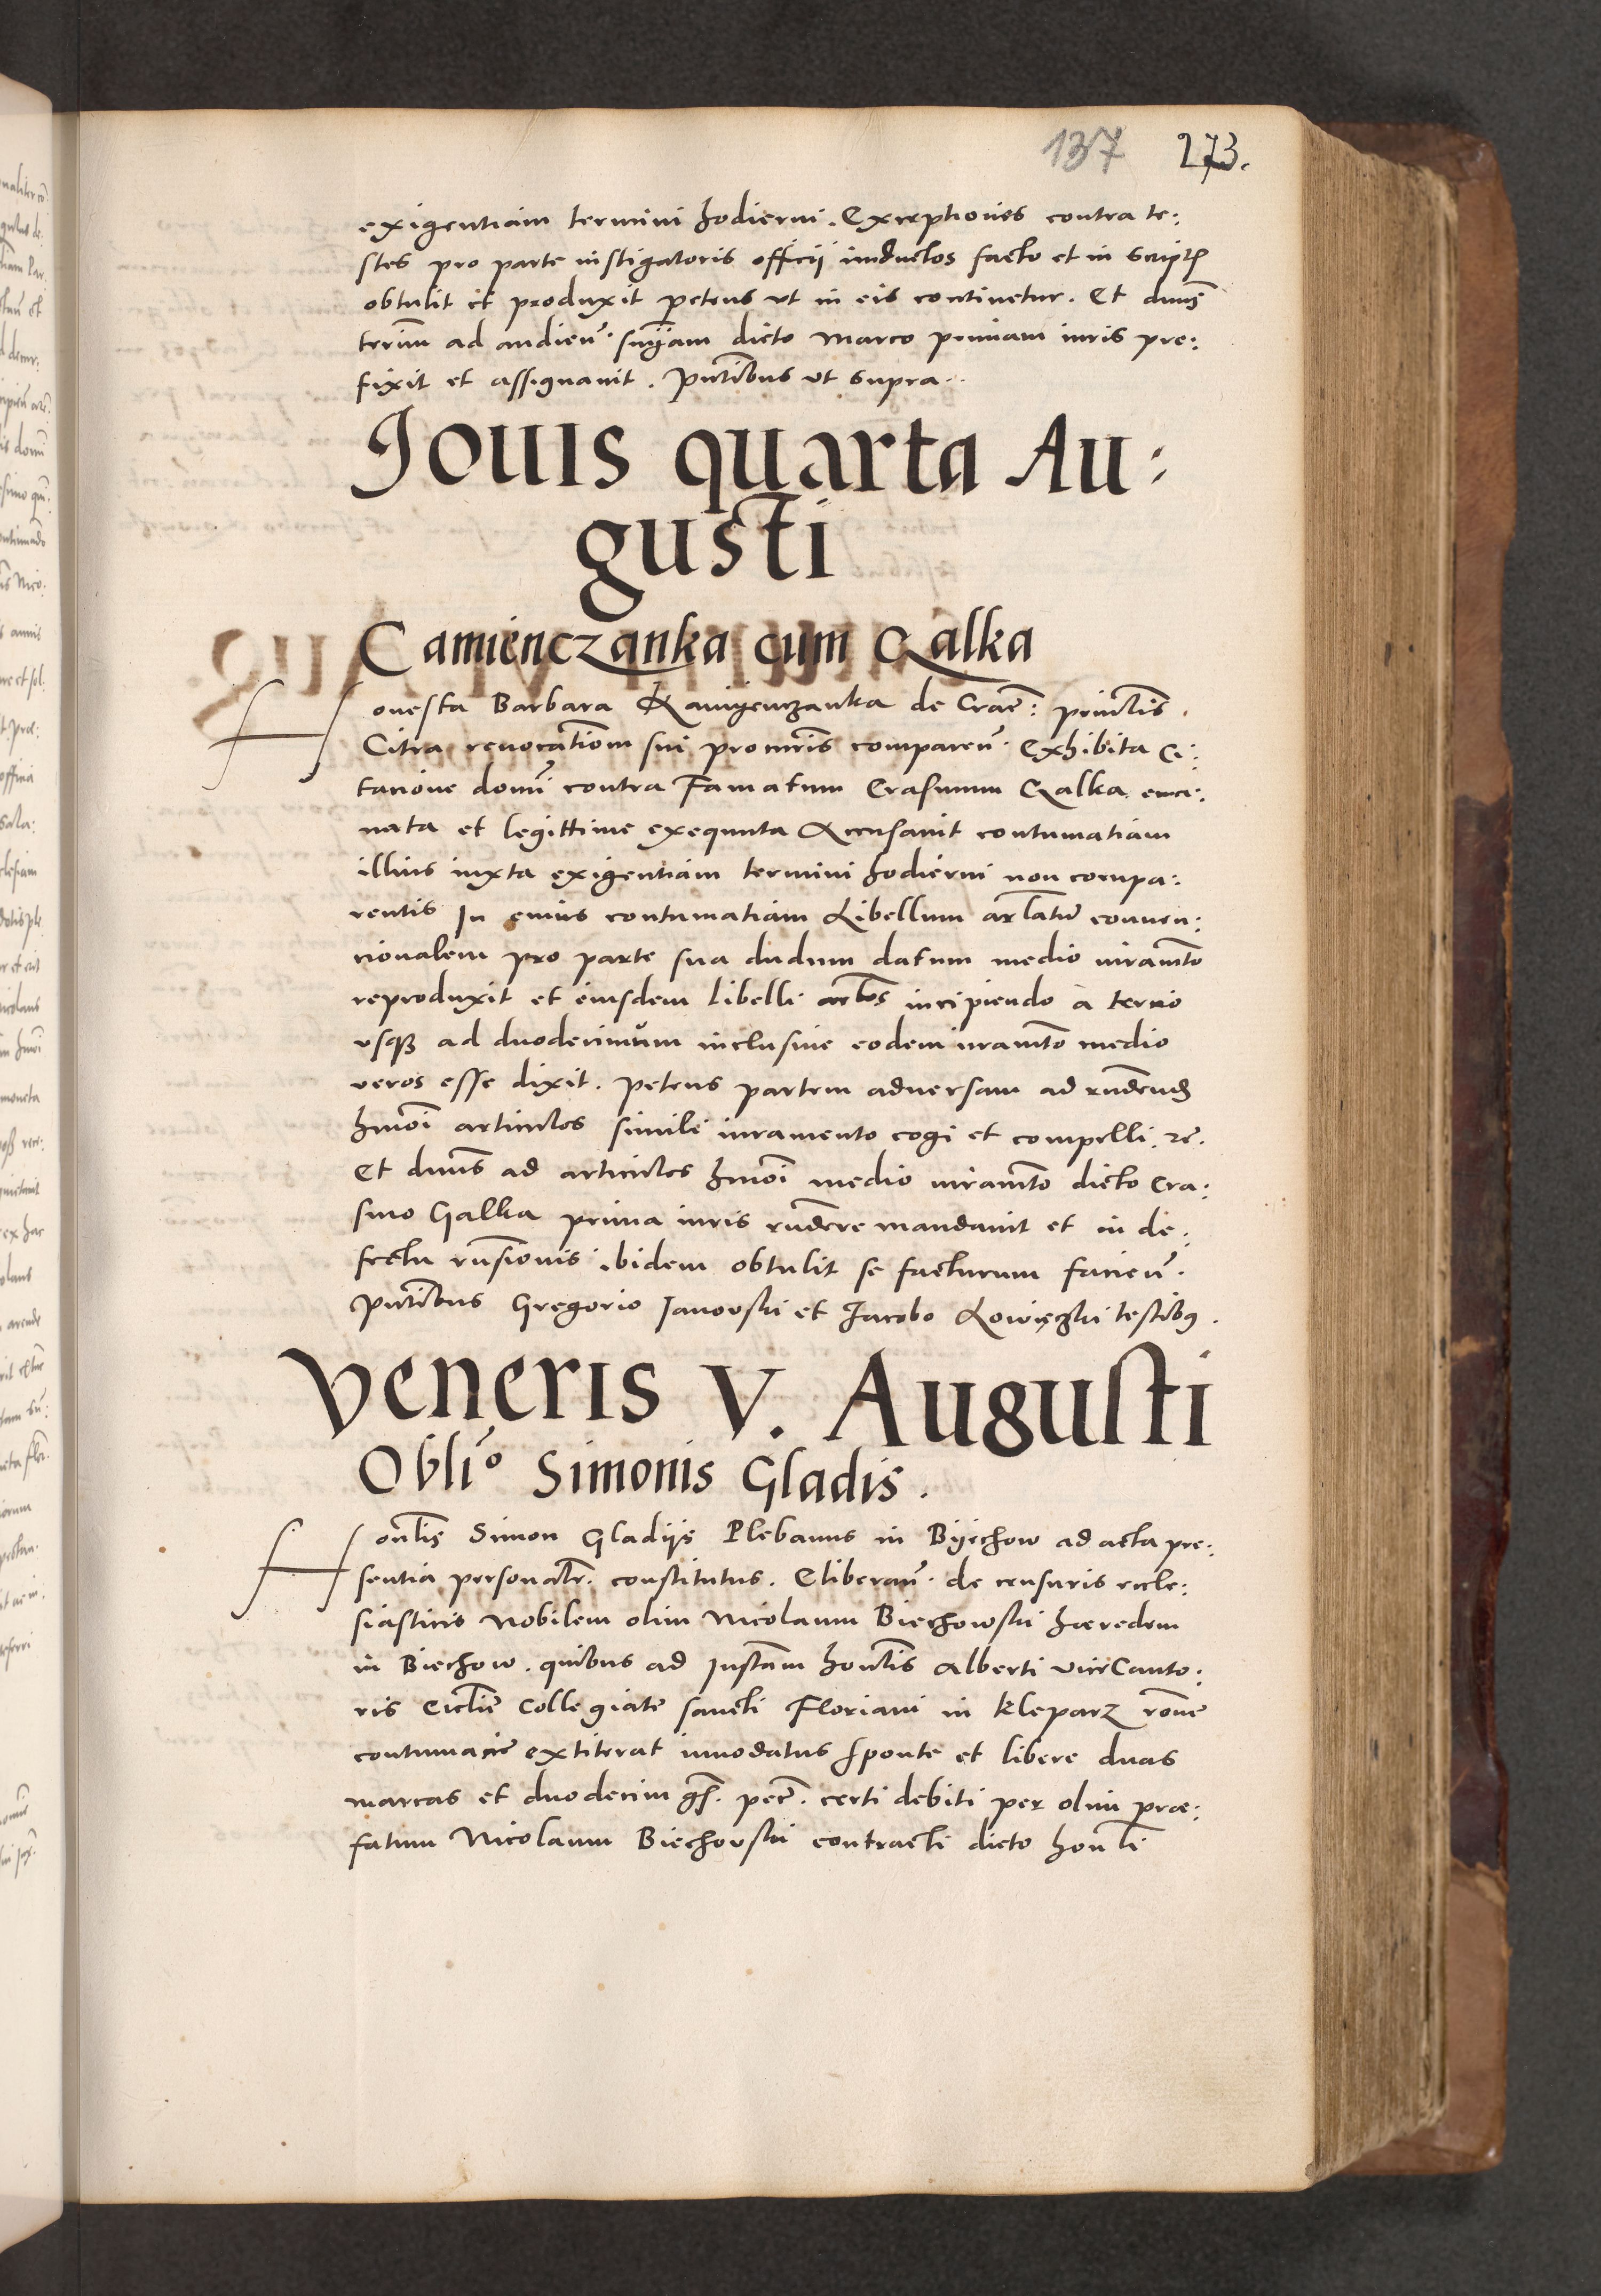 137 273.
exigentiam termini hodierni. Exceptiones contra te:
stes pro parte instigatoris officii inductos facto et in script
obtulit et produxit petens vt in eis continetur. Et dnus
termin ad audien. sniam dicto Marco primam iuris pre:
fixit et assignauit. Pntibus vt supra.
Jouis quarta Au:
gusti
Camienczanka cum Galka
Honesta Barbara Kamyenczanka de Crac: princlis
Citra reuocationem sui procuris comparen. Exhibita Ci:
tacione domi contra Famatum Erasmum Galka ema:
nata et legittime exequuta Accusauit contumatiam
illius iuxta exigentiam termini hodierni non compa:
rentis In cuius contumatiam Libellum artlatum conuen:
cionalem pro parte sua dudum datum medio iuramto
reproduxit et eiusdem libelli artlos incipiendo a tercio
vsqz ad duodecimum inclusiue eodem iuramto medio
veros esse dixit. Petens partem aduersam ad rndend
hmoi articulos simili iuramento cogi et compelli. rc.
Et dnus ad articulos hmoi medio iuramto dicto Era:
smo Galka prima iuris rndere mandauit et in de:
fectu rnsionis ibidem obtulit se facturum facien.
Pntibus Gregorio Janovski et Jacobo Lowięzki testibus.
Veneris V. Augusti
Oblio Simonis Gladis.
Honlis Simon Gladijs Plebanus in Byechow ad acta pre:
sentia personalr. constitutus. Eliberan. de censuris eccle:
siasticis Nobilem olim Nicolaum Biechowski hæredem
in Biechow. quibus ad Instam honlis Alberti viceCanto:
ris Ecclie Collegiate sancti Floriani in Kleparz rone
contumacie extiterat innodatus sponte et libere duas
marcas et duodecim gs. pec. certi debiti per olim præ:
fatum Nicolaum Biechovski contracti dicto honli